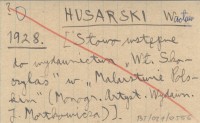 ? O HUSARSKI Wacław
1928. [Słowo wstępne
do wydawnictwa "Wł. Skoczylas" w "Malarstwie Polskim" (Monogr. Artyst. Wydawn.
J. Mortkowicza)].